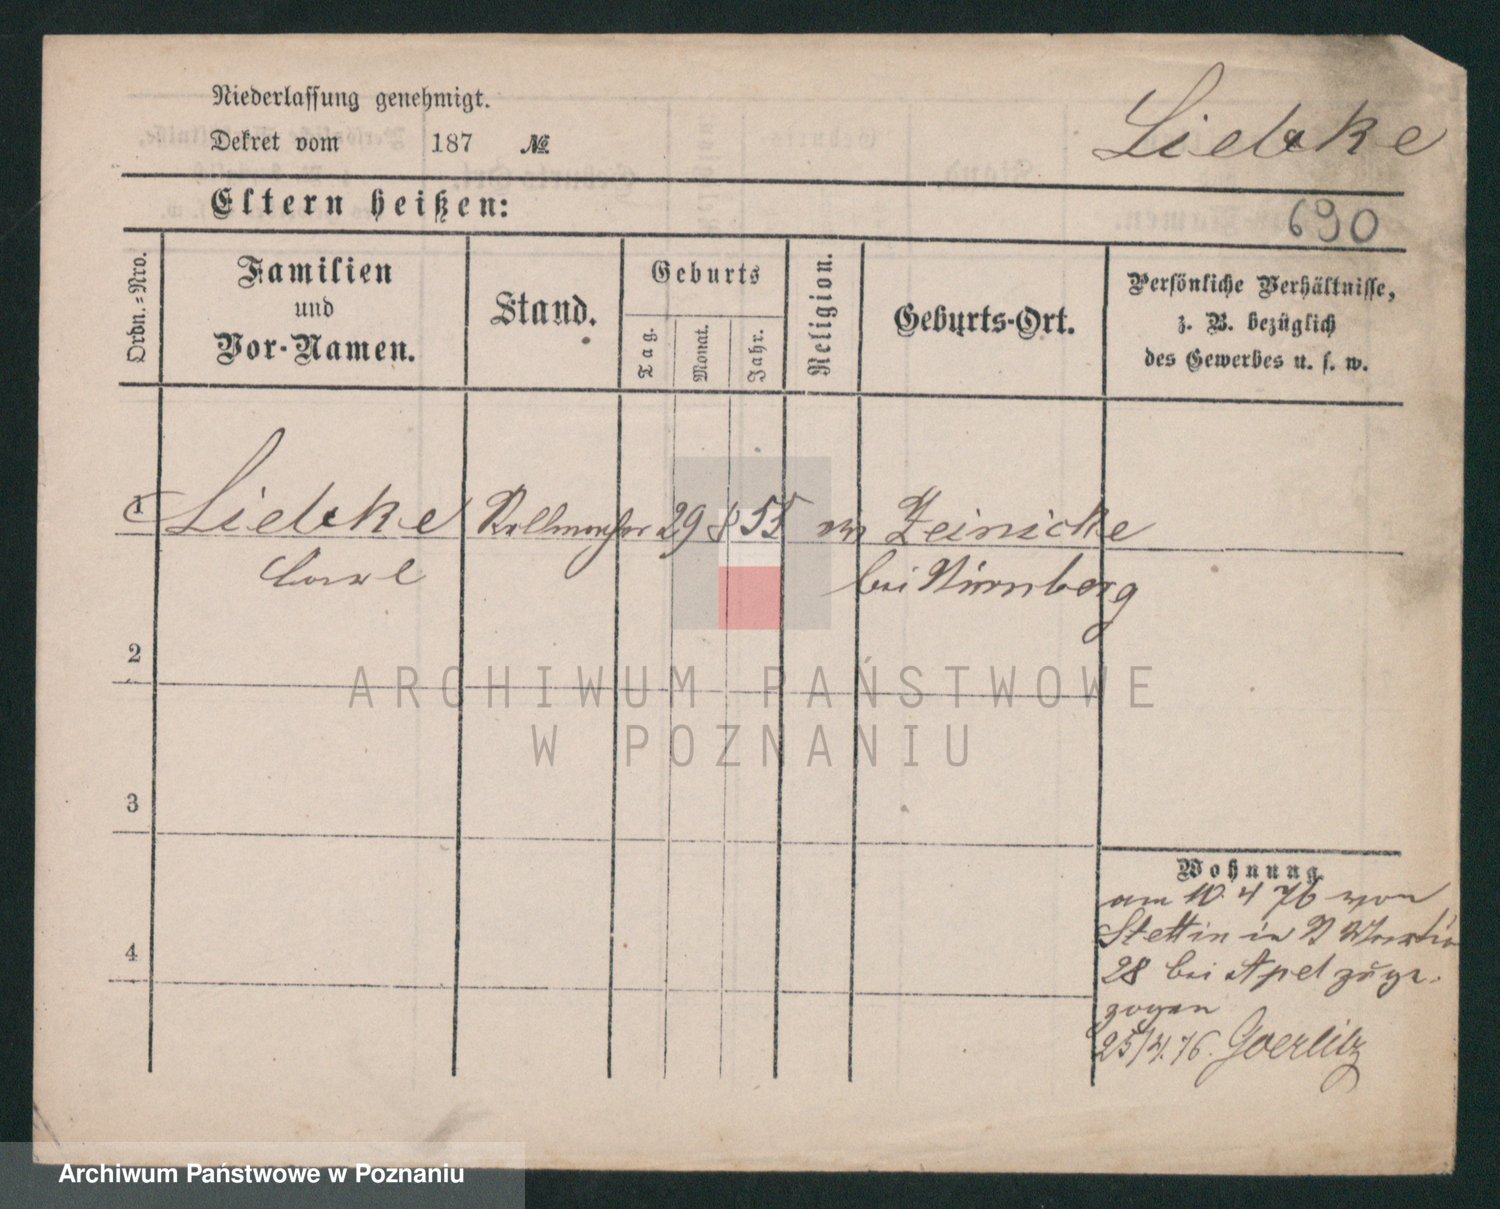 Niederlassung genehmigt.
Dekret vom 187 №
Liebcke
Eltern heißen:
690
Ordn.-Nro.
Familien
und
Vor-Namen.
Stand.
Geburts
Tag.
Monat.
Jahr.
Religion.
Geburts-Ort.
Persönliche Verhältnisse,
z. B. bezüglich
des Gewerbes u. s. w.
1 Liebcke 29 8 55 ev Zeinicke
Carl bei Nürnberg
2
ARCHIWUM PAŃSTWOWE
W POZNANIU
3
Wohnung
am 10. 4 76 von
Stettin in
4
28 bei Apel zuge-
zogen
25/4. 76. Goerlitz
Archiwum Państwowe w Poznaniu